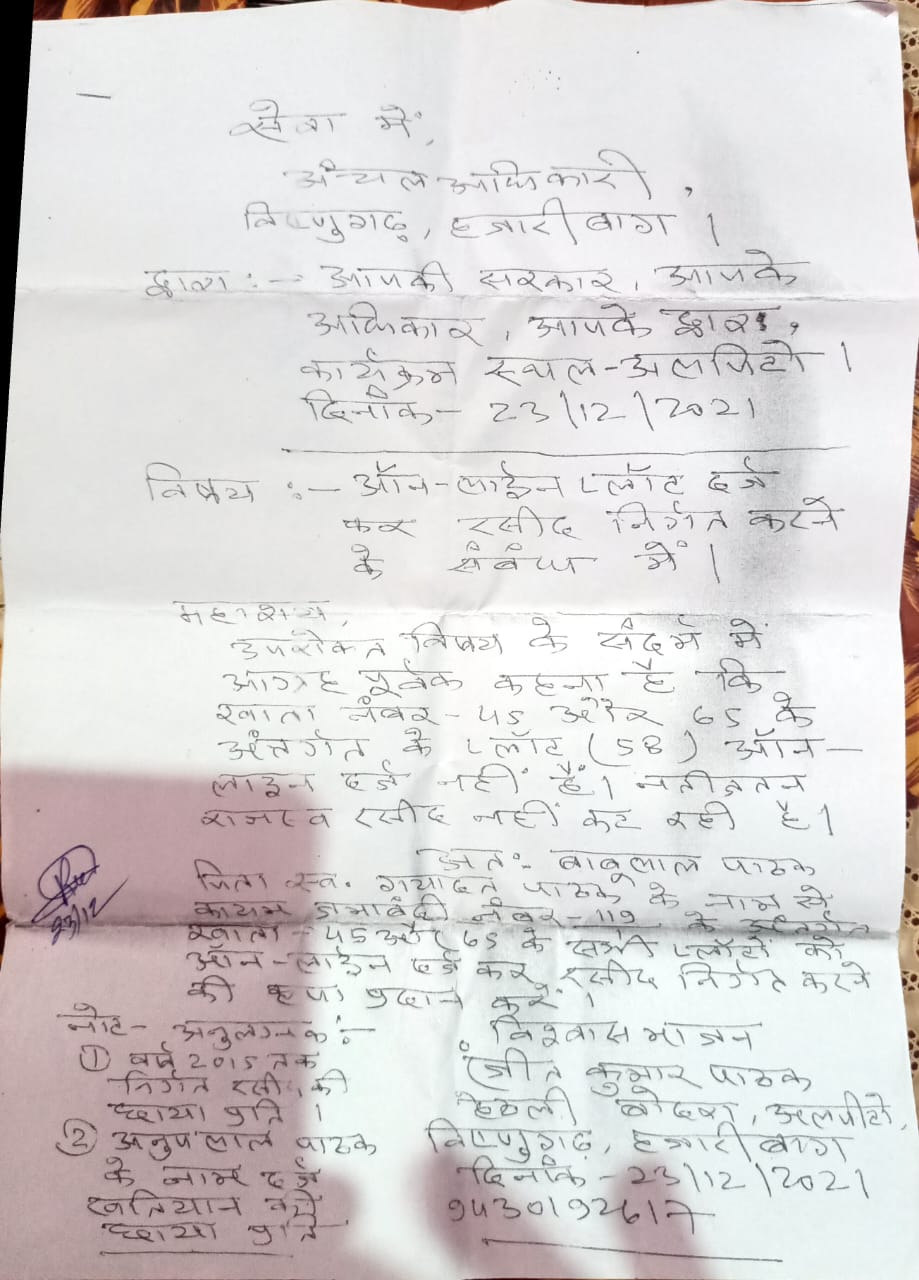 सेवा में,
अंचल अधिकारी,
विष्णुगढ़, हजारीबाग।
द्वारा :- आपकी सरकार, आपके
अधिकार, आपके द्वारा,
कार्यक्रम स्थल-अलपिटो।
दिनाँक- 23/12/2021
विषय :- ऑन-लाईन प्लॉट दर्ज
कर रसीद निर्गत करने
के संबंध में।
महाशय,
उपरोक्त विषय के संदर्भ में
आग्रह पूर्वक कहना है कि
खाता नंबर-45 और 65 के
अंतर्गत के प्लॉट (58) ऑन-
लाइन दर्ज नहीं हैं। नतीजतन
राजस्व रसीद नहीं कट रही है।
अतः बाबुलाल पाठक
पिता स्व. गयादत पाठक के नाम से
कायम जमाबंदी नंबर-119 के अंतर्गत
खाता-45 और 65 के सभी प्लॉटों को
ऑन-लाईन दर्ज कर रसीद निर्गत करने
की कृपा प्रदान करें।
23/12
नोट- अनुलग्नक:-
① वर्ष 2015 तक
निर्गत रसीद की
छाया प्रति।
② अनुपलाल पाठक
के नाम दर्ज
खतियान की
छाया प्रति
विश्वास भाजन
कुमार पाठक
हेठली बोदरा, अलपीटो,
विष्णुगढ़, हजारीबाग
दिनाँक-23/12/2021
9430192617